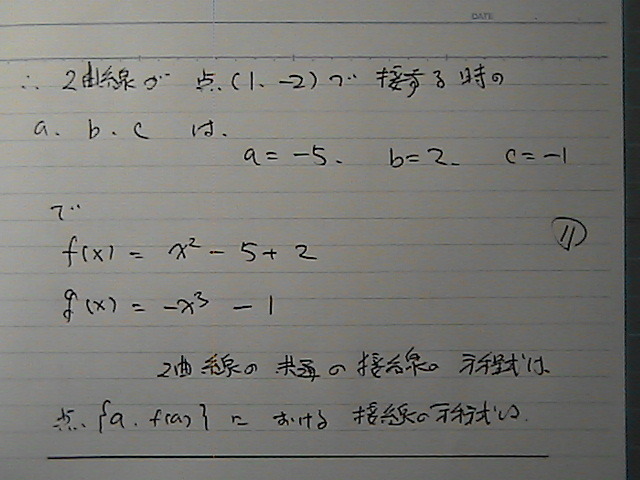 DATE
∴ 2曲線が 点(1、-2)で 接する時の
a、b、c は、
a = -5、 b = 2、 c = -1
で
f(x) = x² - 5 + 2
g(x) = -x³ - 1
⑪
2曲線の共通の接線の方程式は
点、{a、f(a)}における 接線の方程式は、